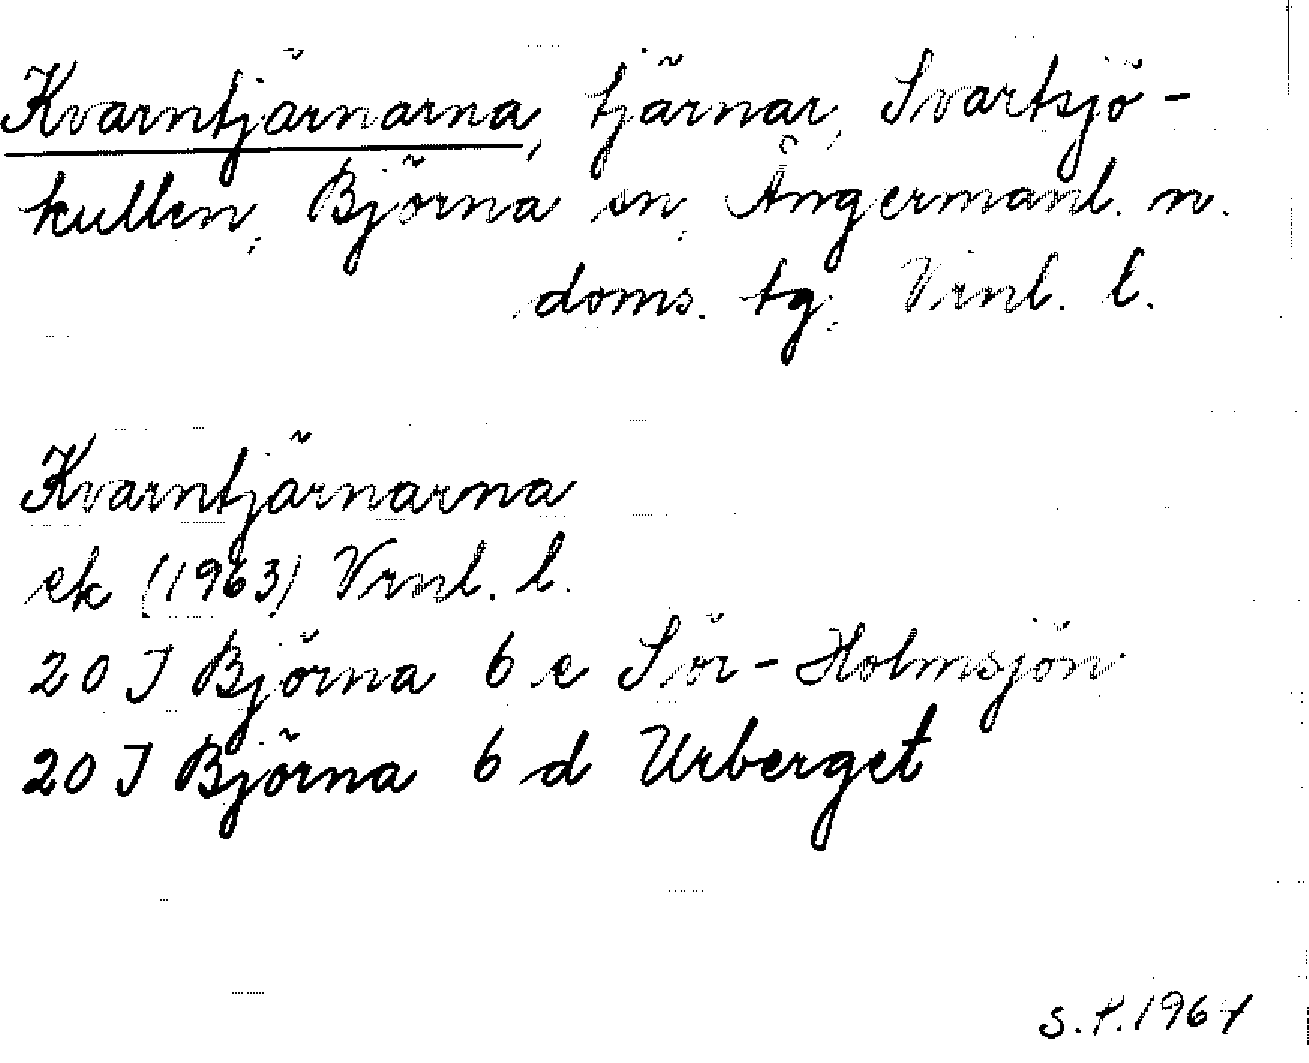 Kvarntjärnarna, tjärnar, Svartsjö-
kullen, Björna sn, Ångermanl. n.
doms. tg, Vrnl. l.
Kvarntjärnarna
ek (1963) Vrnl. l.
20 J Björna 6 e Sör-Holmsjön
20 J Björna 6 d Urberget
S.F. 1964